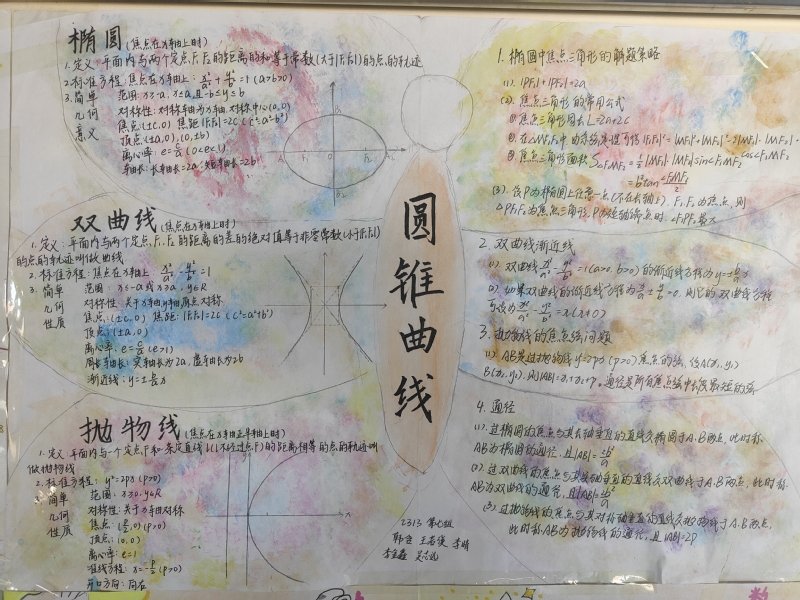 椭圆(焦点在x轴上时)
1.定义:平面内与两个定点F₁F₂的距离的和等于常数(大于|F₁F₂|)的点的轨迹
2.标准方程:焦点在x轴上:x²/a²+y²/b²=1(a>b>0)
3.简单几何意义
范围:x≥-a,x≤a,且-b≤y≤b
对称性:对称轴为x轴y轴,对称中心(0,0)
焦点(±c,0) 焦距|F₁F₂|=2c(c²=a²-b²)
顶点(±a,0),(0,±b)
离心率:e=c/a(0<e<1)
轴长:长轴长=2a,短轴长=2b
双曲线(焦点在x轴上时)
1.定义:平面内与两个定点F₁F₂的距离的差的绝对值等于非零常数(小于|F₁F₂|)
的点的轨迹叫做曲线
2.标准方程:焦点在x轴上 x²/a²-y²/b²=1
3.简单几何性质
范围:x≤-a或x≥a,y∈R
对称性:关于x轴y轴原点对称
焦点:(±c,0) 焦距:|F₁F₂|=2c(c²=a²+b²)
顶点:(±a,0)
离心率:e=c/a(e>1)
实轴长为2a,虚轴长为2b
渐近线:y=±b/a x
抛物线(焦点在x轴正半轴上时)
1.定义 平面内与一个定点F和一条定直线l(l不经过点F)的距离相等的点的轨迹叫
做抛物线
2.标准方程:y²=2px(p>0)
简单几何性质
范围:x≥0,y∈R
对称性:关于x轴对称
焦点:(p/2,0)(p>0)
顶点:(0,0)
离心率:e=1
准线方程:x=-p/2(p>0)
开口方向:向右
圆锥曲线
2313 第七组
1.椭圆中焦点三角形的解题策略
(1).|PF₁|+|PF₂|=2a
(2).焦点三角形的常用公式
①焦点三角形周长L=2a+2c
②.在△MF₁F₂中,由余弦定理可得|F₁F₂|²=|MF₁|²+|MF₂|²-2|MF₁|·|MF₂|·cos∠F₁MF₂
③.焦点三角形面积S△F₁MF₂=1/2|MF₁|·|MF₂|sin∠F₁MF₂
=b²tan∠F₁MF₂/2
(3).设P为椭圆上任意一点(不在长轴上),F₁,F₂为焦点,则
△PF₁F₂为焦点三角形,P为短轴端点时,∠F₁PF₂最大
2.双曲线渐近线
(1).双曲线x²/a²-y²/b²=1(a>0,b>0)的渐近线方程为y=±b/a x
(2).如果双曲线的渐近线方程为x/a±y/b=0,则它的双曲线方程
可设为x²/a²-y²/b²=λ(λ≠0)
3.抛物线的焦点弦问题
(1).AB是过抛物线y²=2px(p>0)焦点的弦,设A(x₁,y₁)
B(x₂,y₂),则|AB|=x₁+x₂+p。通径是所有焦点弦中长度最短的弦
4.通径
(1).过椭圆的焦点与其长轴垂直的直线交椭圆于A.B两点,此时称
AB为椭圆的通径,且|AB|=2b²/a
(2).过双曲线的焦点与其实轴垂直的直线交双曲线于A.B两点,此时称
AB为双曲线的通径,且|AB|=2b²/a
(3).过抛物线的焦点与其对称轴垂直的直线交抛物线于A.B两点,
此时称AB为抛物线的通径,且|AB|=2p